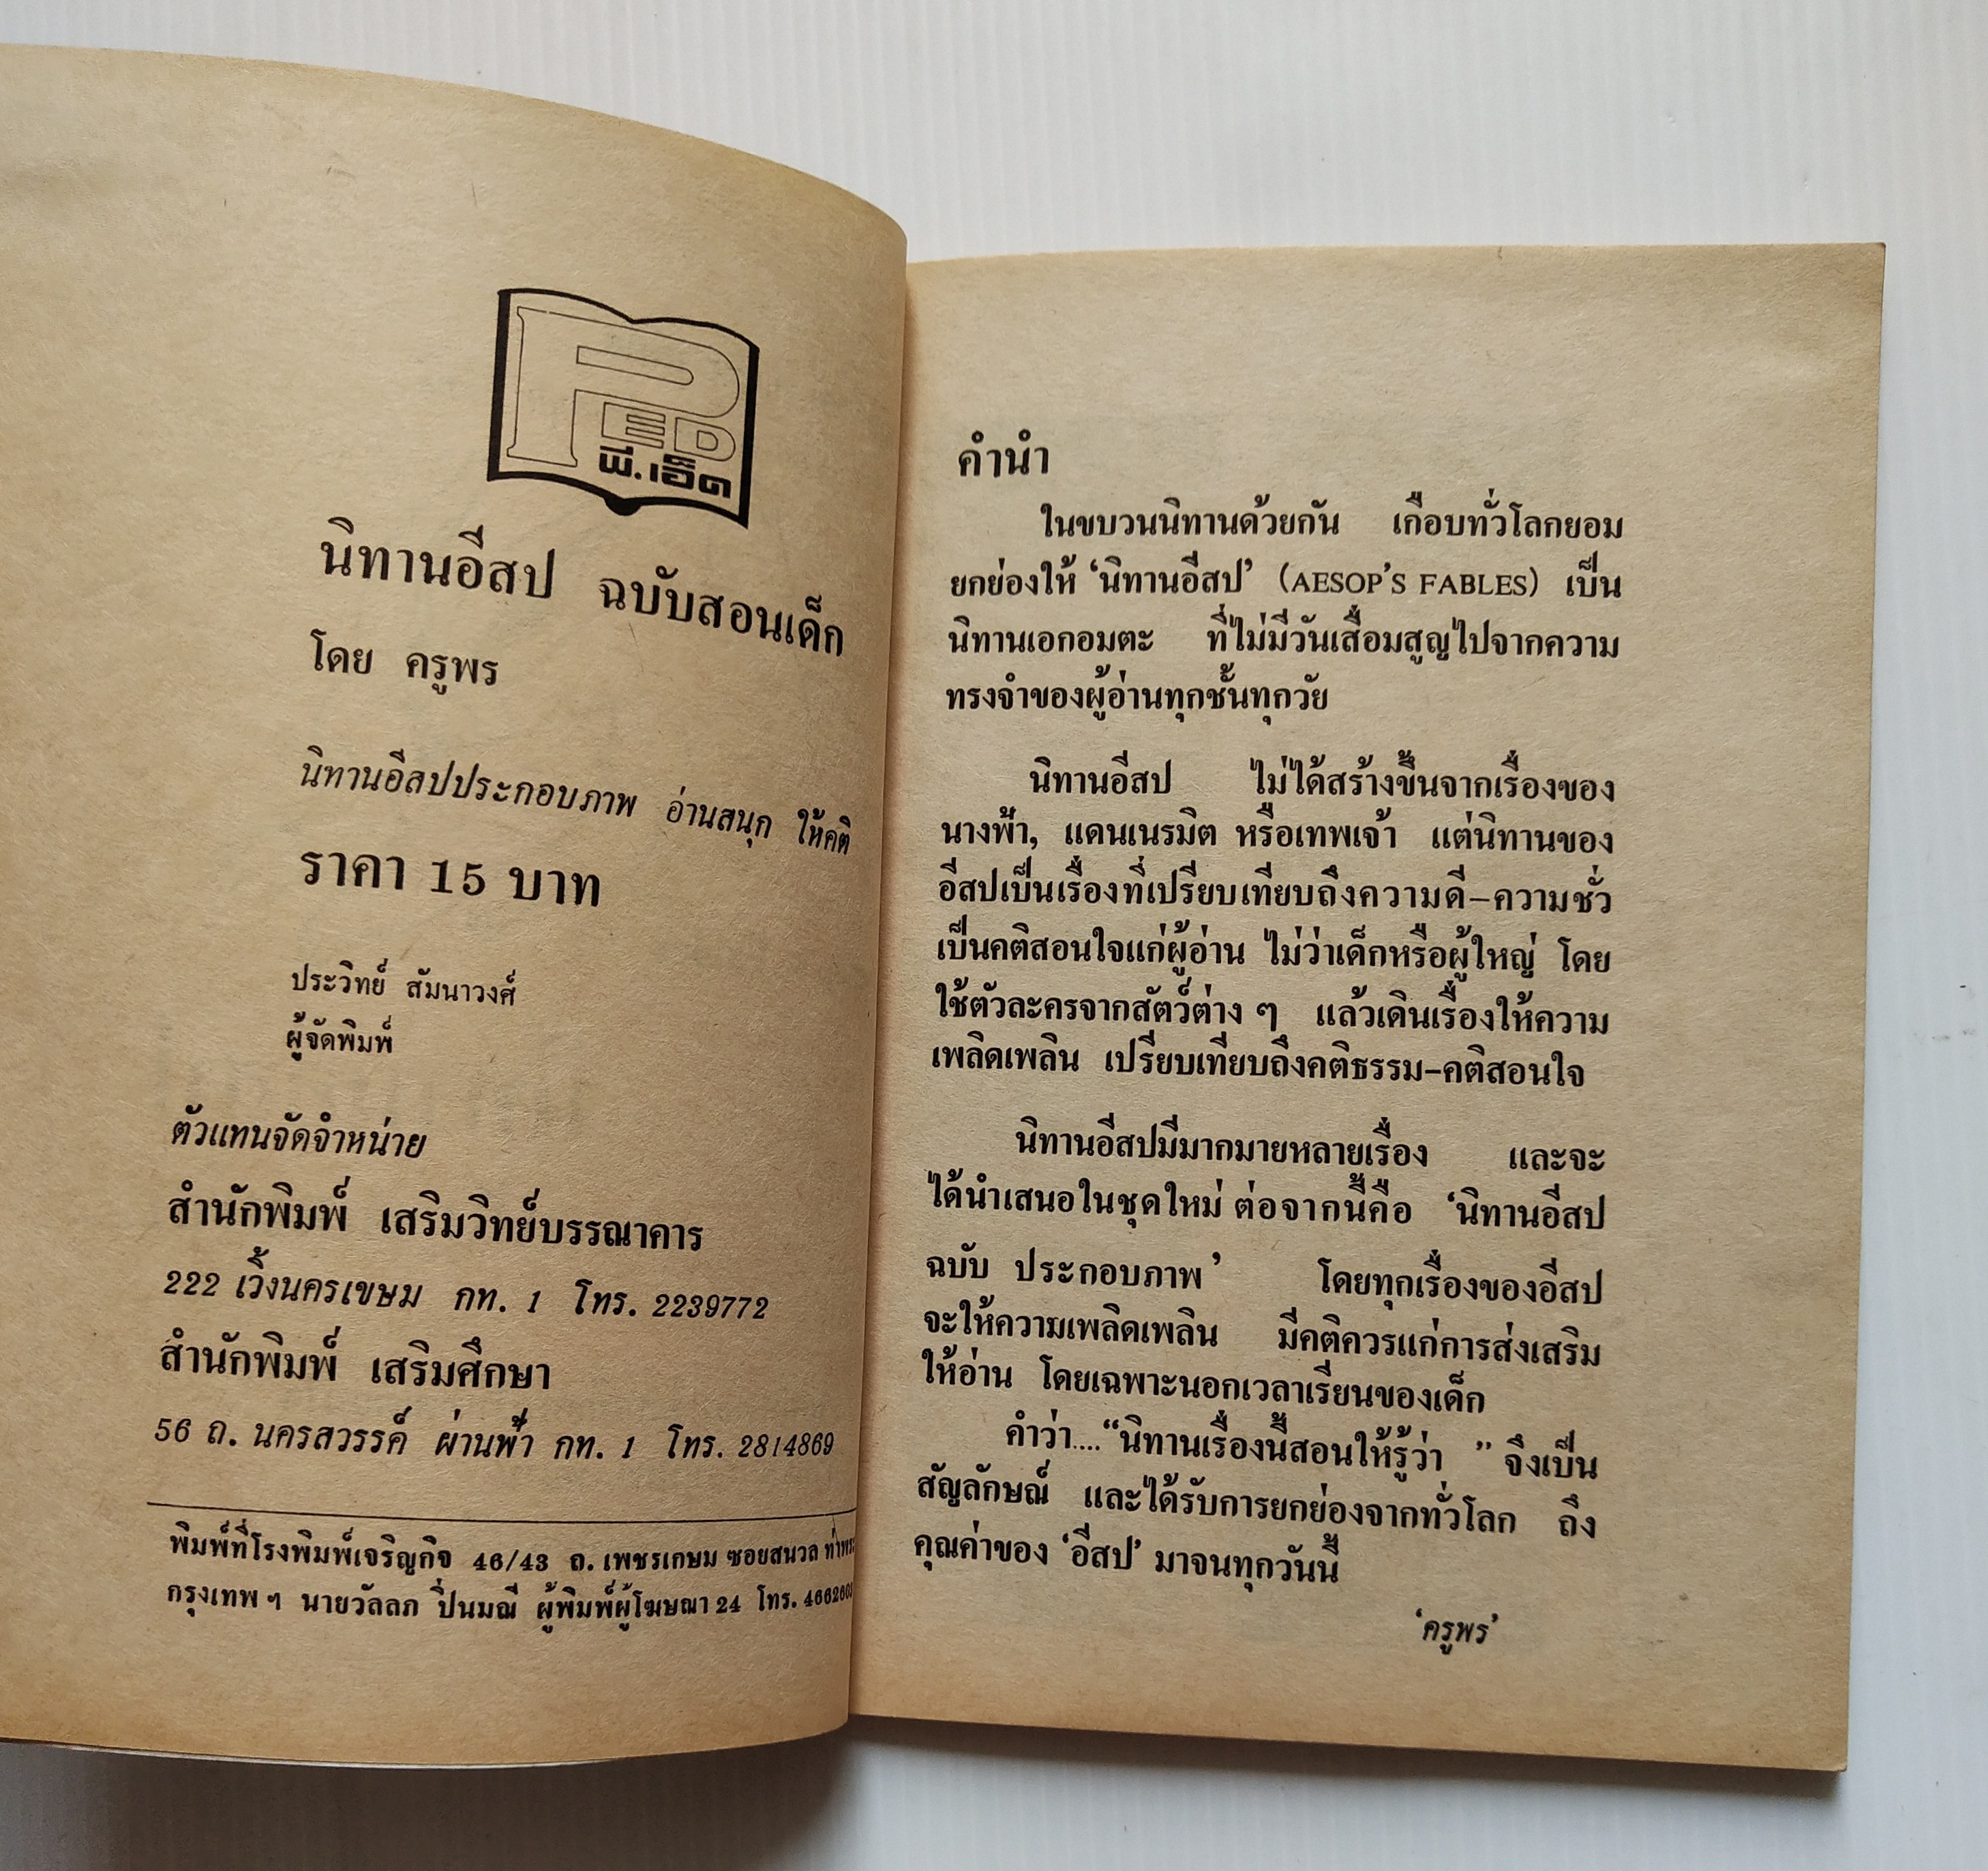 PED
พี.เอ็ด
นิทานอีสป ฉบับสอนเด็ก
โดย ครูพร
นิทานอีสปประกอบภาพ อ่านสนุก ให้คติ
ราคา 15 บาท
ประวิทย์ สัมนาวงศ์
ผู้จัดพิมพ์
ตัวแทนจัดจำหน่าย
สำนักพิมพ์ เสริมวิทย์บรรณาคาร
222 เวิ้งนครเขษม กท. 1 โทร. 2239772
สำนักพิมพ์ เสริมศึกษา
56 ถ. นครสวรรค์ ผ่านฟ้า กท. 1 โทร. 2814869
พิมพ์ที่โรงพิมพ์เจริญกิจ 46/43 ถ. เพชรเกษม ซอยสนวล ท่าพระ
กรุงเทพ ฯ นายวัลลภ ปิ่นมณี ผู้พิมพ์ผู้โฆษณา 24 โทร.
คำนำ
ในขบวนนิทานด้วยกัน เกือบทั่วโลกยอม
ยกย่องให้ ‘นิทานอีสป’ (AESOP’S FABLES) เป็น
นิทานเอกอมตะ ที่ไม่มีวันเสื่อมสูญไปจากความ
ทรงจำของผู้อ่านทุกชั้นทุกวัย
นิทานอีสป ไม่ได้สร้างขึ้นจากเรื่องของ
นางฟ้า, แดนเนรมิต หรือเทพเจ้า แต่นิทานของ
อีสปเป็นเรื่องที่เปรียบเทียบถึงความดี–ความชั่ว
เป็นคติสอนใจแก่ผู้อ่าน ไม่ว่าเด็กหรือผู้ใหญ่ โดย
ใช้ตัวละครจากสัตว์ต่าง ๆ แล้วเดินเรื่องให้ความ
เพลิดเพลิน เปรียบเทียบถึงคติธรรม–คติสอนใจ
นิทานอีสปมีมากมายหลายเรื่อง และจะ
ได้นำเสนอในชุดใหม่ ต่อจากนี้คือ ‘นิทานอีสป
ฉบับ ประกอบภาพ’ โดยทุกเรื่องของอีสป
จะให้ความเพลิดเพลิน มีคติควรแก่การส่งเสริม
ให้อ่าน โดยเฉพาะนอกเวลาเรียนของเด็ก
คำว่า....“นิทานเรื่องนี้สอนให้รู้ว่า ” จึงเป็น
สัญลักษณ์ และได้รับการยกย่องจากทั่วโลก ถึง
คุณค่าของ ‘อีสป’ มาจนทุกวันนี้
‘ครูพร’